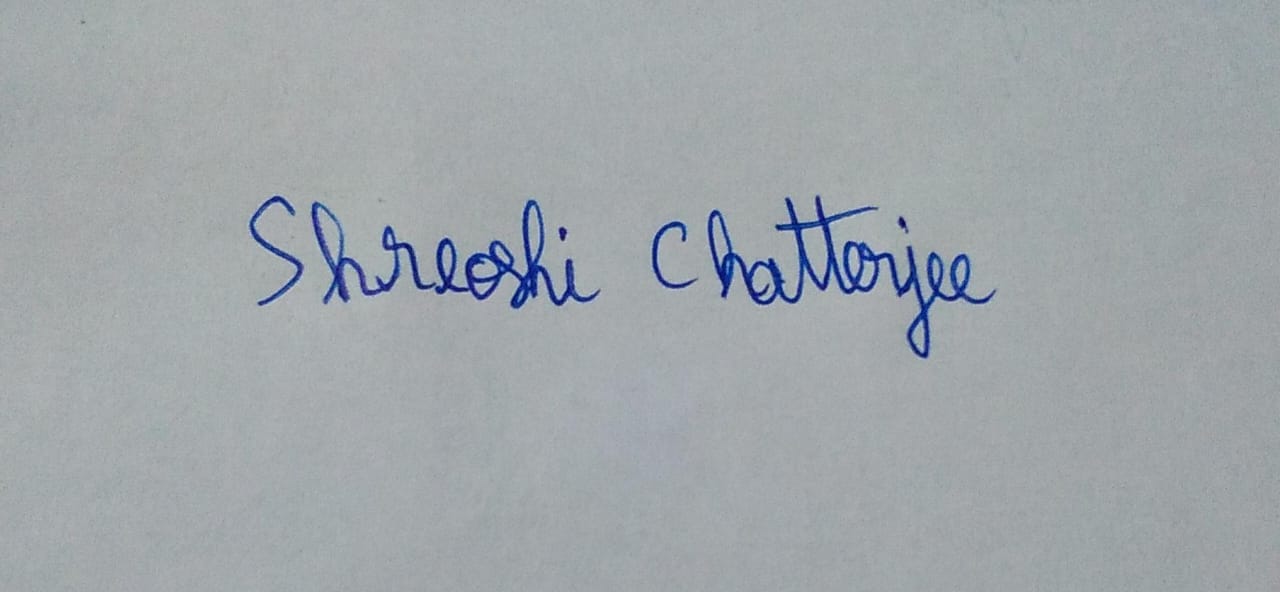 Shreoshi Chatterjee